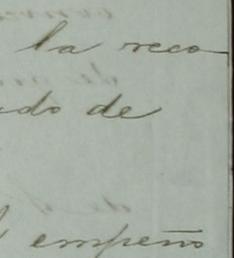 la reco
ado de
empeño